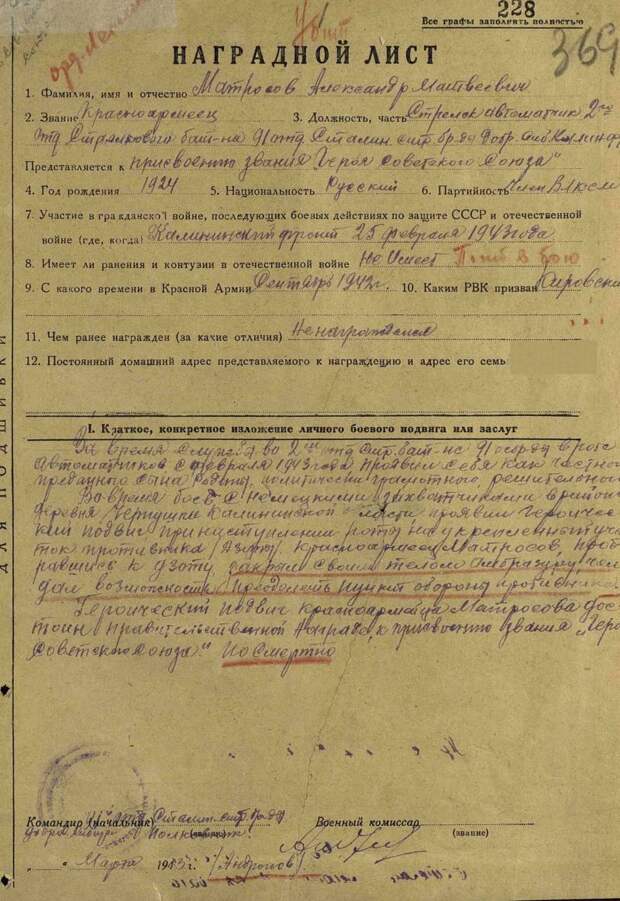 228
Все графы заполнить полностью
Убит
орд. Ленина
369
НАГРАДНОЙ ЛИСТ
1. Фамилия, имя и отчество Матросов Александр Матвеевич
2. Звание Красноармеец 3. Должность, часть Стрелок автоматчик 2го
отд Стрелкового бат-на 91 отд Сталин. стр. бр-ды добр. Сиб.
Представляется к присвоению звания Героя Советского Союза"
4. Год рождения 1924 5. Национальность Русский 6. Партийность Член ВЛКСМ
7. Участие в гражданской войне, последующих боевых действиях по защите СССР и отечественной
войне (где, когда) Калининский фронт 25 февраля 1943 года
8. Имеет ли ранения и контузии в отечественной войне Не имеет Погиб в бою
9. С какого времени в Красной Армии Сентябрь 1942г. 10. Каким РВК призван Кировски
11. Чем ранее награжден (за какие отличия) Не награждался
12. Постоянный домашний адрес представляемого к награждению и адрес его семь
ДЛЯ ПОДШИВКИ
I. Краткое, конкретное изложение личного боевого подвига или заслуг
За время службы во 2ом отд стр. бат-не 91 осбр в роте
автоматчиков с февраля 1943 года проявил себя как честного
преданного сына Родины, политически грамотного, решительного
Во время боев с немецкими захватчиками в районе
деревня Чернушки Калининской области проявил героичес
кий подвиг при наступлении роты на укрепленный учас
ток противника (дзоты) Красноармеец Матросов, проб
равшись к дзоту, закрыл своим телом амбразуру, чем
дал возможность преодолеть пункт обороны противника
Героический подвиг красноармейца Матросова дос
тоин правительственной награды, к присвоению звания „Геро
Советского Союза." Посмертно
Командир (начальник) Сталин. стр. бр-ды Военный комиссар
Полковник (звание)
" Марта 1943 г. /Андронов/